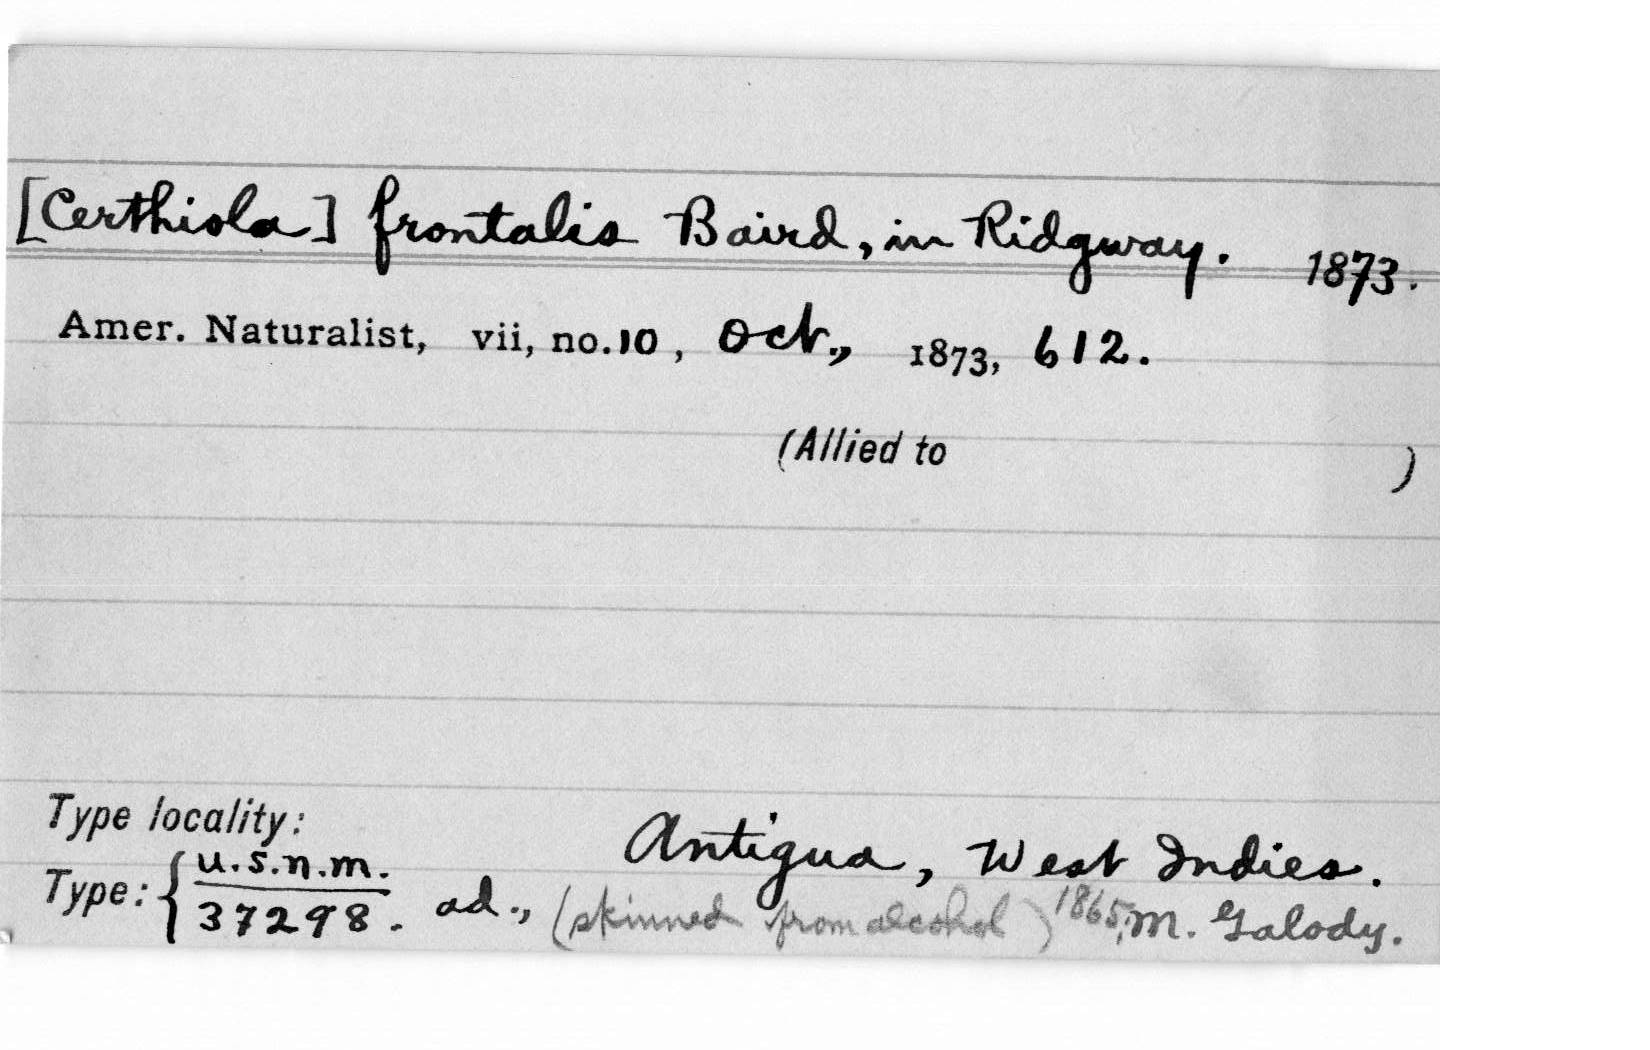 [Certhiola] frontalis Baird, in Ridgway. 1873.
Amer. Naturalist, vii, no. 10, Oct., 1873, 612.
(Allied to )
Type locality: Antigua, West Indies.
Type: { U.S.N.M. 37298. ad., (skinned from alcohol) 1865; M. Galody.